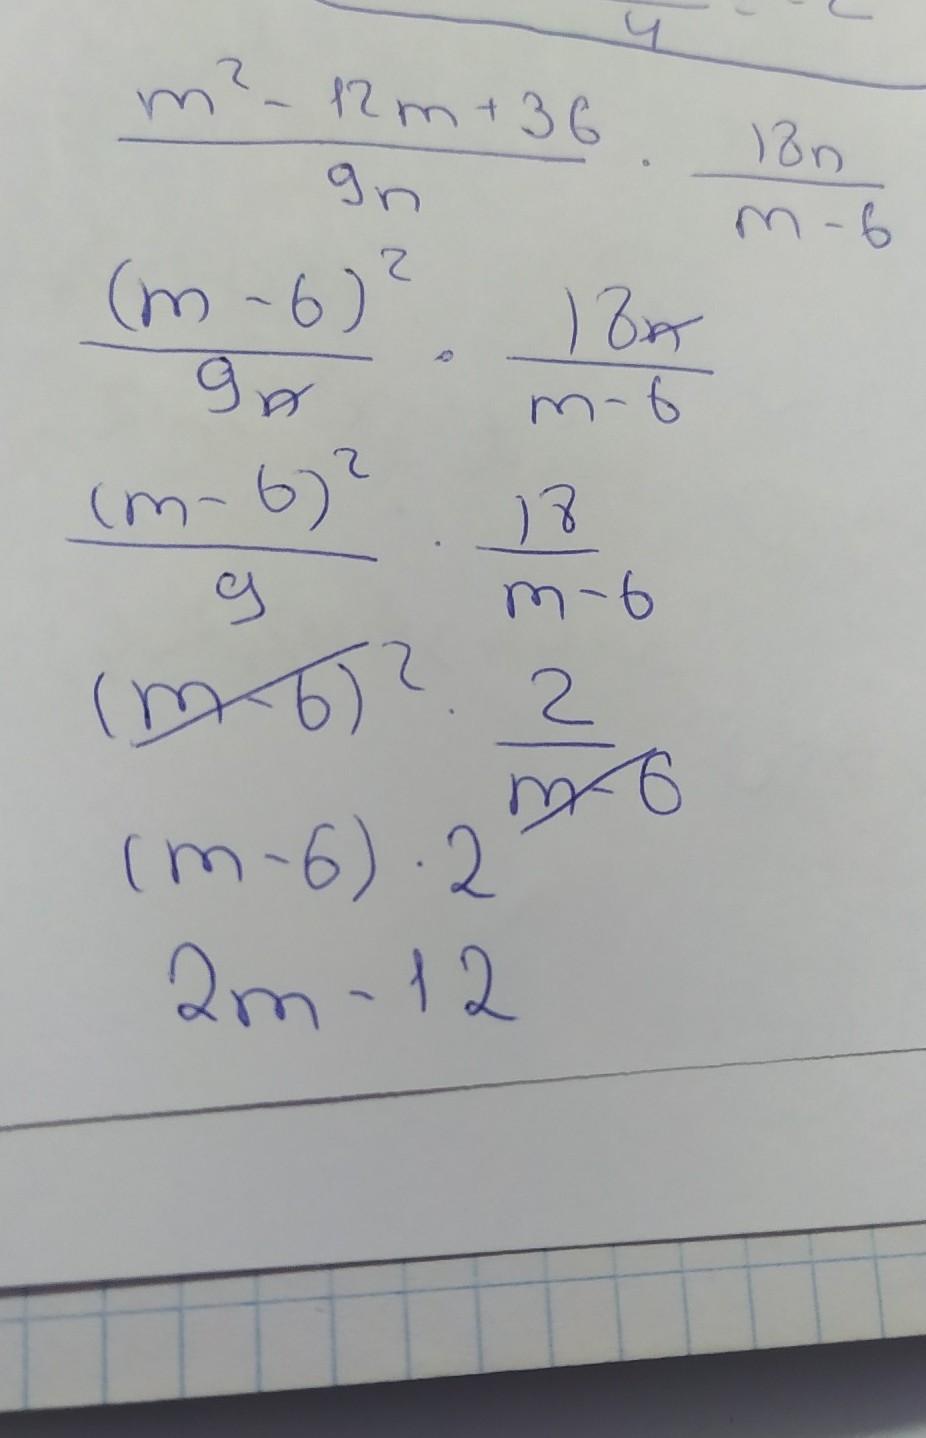 4 = -2
m² - 12m + 36 / 9n · 18n / m - 6
(m - 6)² / 9n · 18n / m - 6
(m - 6)² / 9 · 18 / m - 6
(m - 6)² · 2 / m - 6
(m - 6) · 2
2m - 12